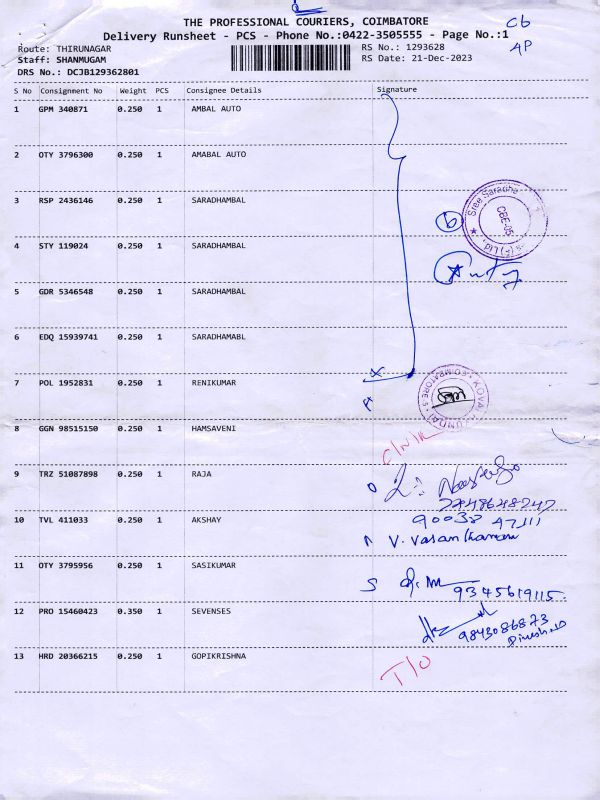 THE PROFESSIONAL COURIERS, COIMBATORE
Cb
Delivery Runsheet - PCS - Phone No.:0422-3505555 - Page No.:1
AP
Route: THIRUNAGAR
RS No.: 1293628
Staff: SHANMUGAM
RS Date: 21-Dec-2023
DRS No.: DCJB129362801
S No Consignment No Weight PCS Consignee Details Signature
1 GPM 340871 0.250 1 AMBAL AUTO
2 OTY 3796300 0.250 1 AMABAL AUTO
3 RSP 2436146 0.250 1 SARADHAMBAL
Sree Saradha
CBE-05
(F) Ltd.
6
4 STY 119024 0.250 1 SARADHAMBAL
5 GDR 5346548 0.250 1 SARADHAMBAL
6 EDQ 15939741 0.250 1 SARADHAMABL
7 POL 1952831 0.250 1 RENIKUMAR
COIMBATORE-5
8 GGN 98515150 0.250 1 HAMSAVENI
C/N/R
9 TRZ 51087898 0.250 1 RAJA
10 TVL 411033 0.250 1 AKSHAY
90038 47111
V. Vasanthamani
11 OTY 3795956 0.250 1 SASIKUMAR
S
9345619115.
12 PRO 15460423 0.350 1 SEVENSES
9843086873
13 HRD 20366215 0.250 1 GOPIKRISHNA
T/O